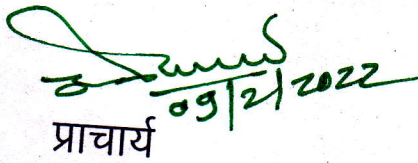 09/2/2022
प्राचार्य